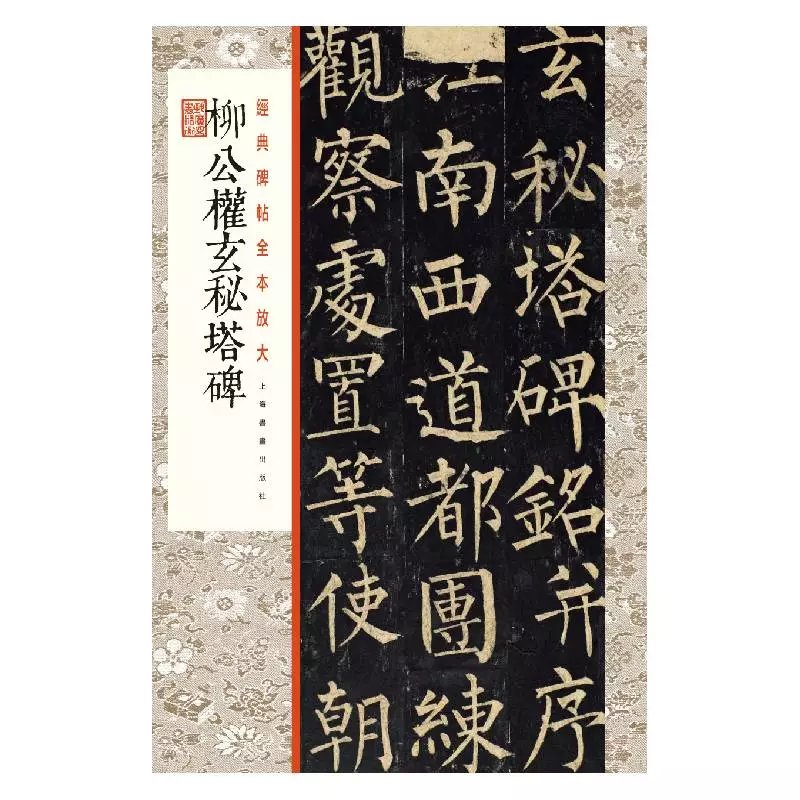 玄秘塔碑銘并序
江南西道都團練
觀察處置等使朝
經典碑帖全本放大
上海書畫出版社
柳公權玄秘塔碑